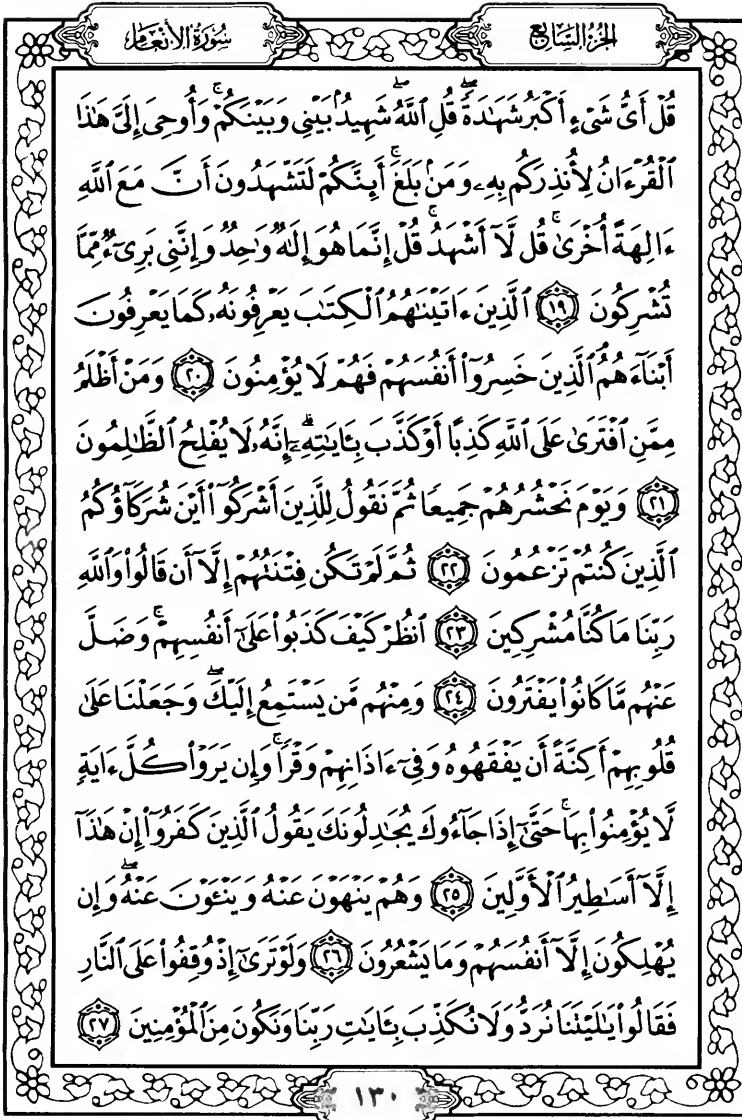 الجزء السابع
سورة الأنعام
قُلْ أَيُّ شَيْءٍ أَكْبَرُ شَهَٰدَةً ۖ قُلِ ٱللَّهُ ۖ شَهِيدٌۢ بَيْنِي وَبَيْنَكُمْ ۚ وَأُوحِيَ إِلَيَّ هَٰذَا
ٱلْقُرْءَانُ لِأُنذِرَكُم بِهِۦ وَمَنۢ بَلَغَ ۚ أَئِنَّكُمْ لَتَشْهَدُونَ أَنَّ مَعَ ٱللَّهِ
ءَالِهَةً أُخْرَىٰ ۚ قُل لَّآ أَشْهَدُ ۚ قُلْ إِنَّمَا هُوَ إِلَٰهٌ وَٰحِدٌ وَإِنَّنِي بَرِيٓءٌ مِّمَّا
تُشْرِكُونَ ﴿١٩﴾ ٱلَّذِينَ ءَاتَيْنَٰهُمُ ٱلْكِتَٰبَ يَعْرِفُونَهُۥ كَمَا يَعْرِفُونَ
أَبْنَآءَهُمُ ٱلَّذِينَ خَسِرُوٓا۟ أَنفُسَهُمْ فَهُمْ لَا يُؤْمِنُونَ ﴿٢٠﴾ وَمَنْ أَظْلَمُ
مِمَّنِ ٱفْتَرَىٰ عَلَى ٱللَّهِ كَذِبًا أَوْ كَذَّبَ بِـَٔايَٰتِهِۦٓ ۗ إِنَّهُۥ لَا يُفْلِحُ ٱلظَّٰلِمُونَ
﴿٢١﴾ وَيَوْمَ نَحْشُرُهُمْ جَمِيعًا ثُمَّ نَقُولُ لِلَّذِينَ أَشْرَكُوٓا۟ أَيْنَ شُرَكَآؤُكُمُ
ٱلَّذِينَ كُنتُمْ تَزْعُمُونَ ﴿٢٢﴾ ثُمَّ لَمْ تَكُن فِتْنَتُهُمْ إِلَّآ أَن قَالُوا۟ وَٱللَّهِ
رَبِّنَا مَا كُنَّا مُشْرِكِينَ ﴿٢٣﴾ ٱنظُرْ كَيْفَ كَذَبُوا۟ عَلَىٰٓ أَنفُسِهِمْ ۚ وَضَلَّ
عَنْهُم مَّا كَانُوا۟ يَفْتَرُونَ ﴿٢٤﴾ وَمِنْهُم مَّن يَسْتَمِعُ إِلَيْكَ ۖ وَجَعَلْنَا عَلَىٰ
قُلُوبِهِمْ أَكِنَّةً أَن يَفْقَهُوهُ وَفِيٓ ءَاذَانِهِمْ وَقْرًا ۚ وَإِن يَرَوْا۟ كُلَّ ءَايَةٍ
لَّا يُؤْمِنُوا۟ بِهَا ۚ حَتَّىٰٓ إِذَا جَآءُوكَ يُجَٰدِلُونَكَ يَقُولُ ٱلَّذِينَ كَفَرُوٓا۟ إِنْ هَٰذَآ
إِلَّآ أَسَٰطِيرُ ٱلْأَوَّلِينَ ﴿٢٥﴾ وَهُمْ يَنْهَوْنَ عَنْهُ وَيَنْـَٔوْنَ عَنْهُ ۖ وَإِن
يُهْلِكُونَ إِلَّآ أَنفُسَهُمْ وَمَا يَشْعُرُونَ ﴿٢٦﴾ وَلَوْ تَرَىٰٓ إِذْ وُقِفُوا۟ عَلَى ٱلنَّارِ
فَقَالُوا۟ يَٰلَيْتَنَا نُرَدُّ وَلَا نُكَذِّبَ بِـَٔايَٰتِ رَبِّنَا وَنَكُونَ مِنَ ٱلْمُؤْمِنِينَ ﴿٢٧﴾
١٣٠